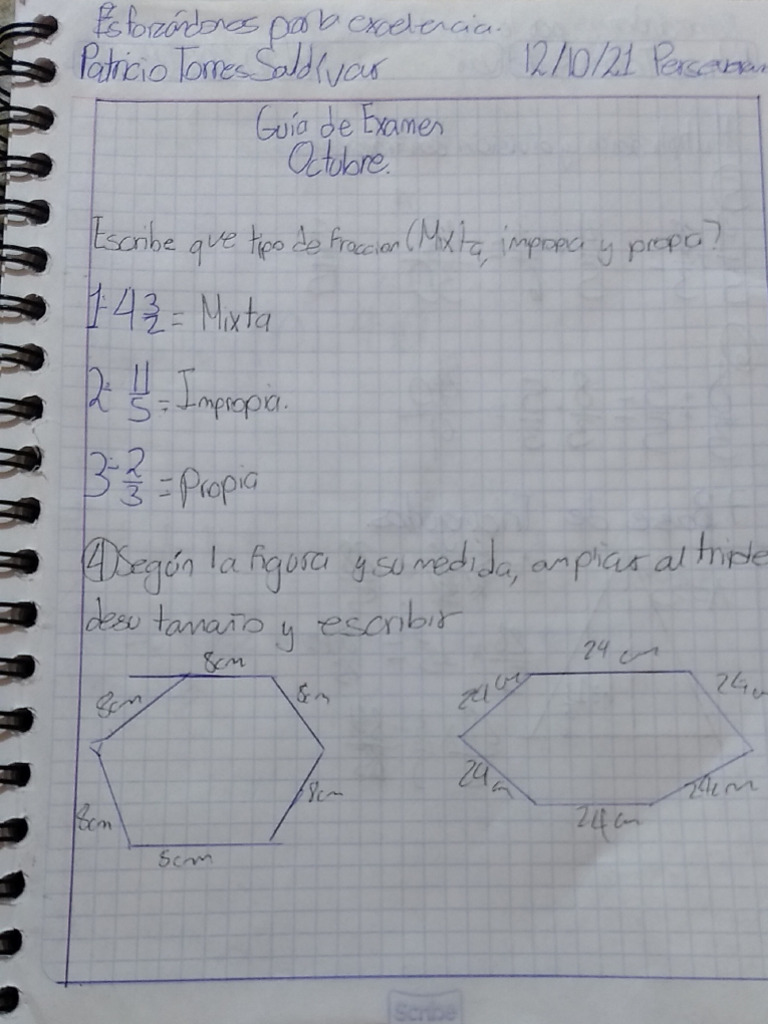 Esforzándonos por la excelencia.
Patricio Torres Saldívar 12/10/21 Perseveran
Guía de Examen
Octubre.
Escribe que tipo de fraccion (Mixta, impropia y propia?
1- 4 3/2 = Mixta
2- 11/5 = Impropia.
3- 2/3 = Propia
4) Según la figura y su medida, ampliar al triple
de su tamaño y escribir
8cm 24 cm
8cm 8cm 24 cm 24c
8cm 8cm 24c 24cm
8cm 24cm
Scribe